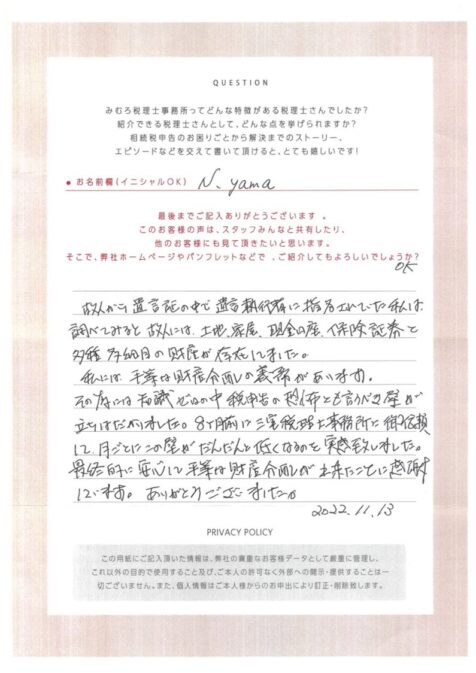 QUESTION
みむろ税理士事務所ってどんな特徴がある税理士さんでしたか？
紹介できる税理士さんとして、どんな点を挙げられますか？
相続税申告のお困りごとから解決までのストーリー、
エピソードなどを交えて書いて頂けると、とても嬉しいです！
●お名前欄（イニシャルOK） N. yama
最後までご記入ありがとうございます 。
このお客様の声は、スタッフみんなと共有したり、
他のお客様にも見て頂きたいと思います。
そこで、弊社ホームページやパンフレットなどで 、ご紹介してもよろしいでしょうか？
OK
故人から遺言証の中で遺言執行者に指名されていた私は
調べてみると故人には、土地、家屋、現金、保険証券と
多種多細目の財産が存在してました。
私には、平等な財産分割の義務があります。
その為には知識ゼロの中税申告の恐怖とも言うべき壁が
立ちはだかりました。8ヶ月前に三室税理士事務所に御依頼
して、月ごとにこの壁がだんだんと低くなるのを実感致しました。
最終的に安心して平等な財産分割が出来たことに感謝
しています。ありがとうございました。
2022.11.13
PRIVACY POLICY
この用紙にご記入頂いた情報は、弊社の貴重なお客様データとして厳重に管理し、
これ以外の目的で使用すること及び、ご本人の許可なく外部への開示・提供することは一
切ございません。また、個人情報はご本人様からのお申出により訂正・削除致します。